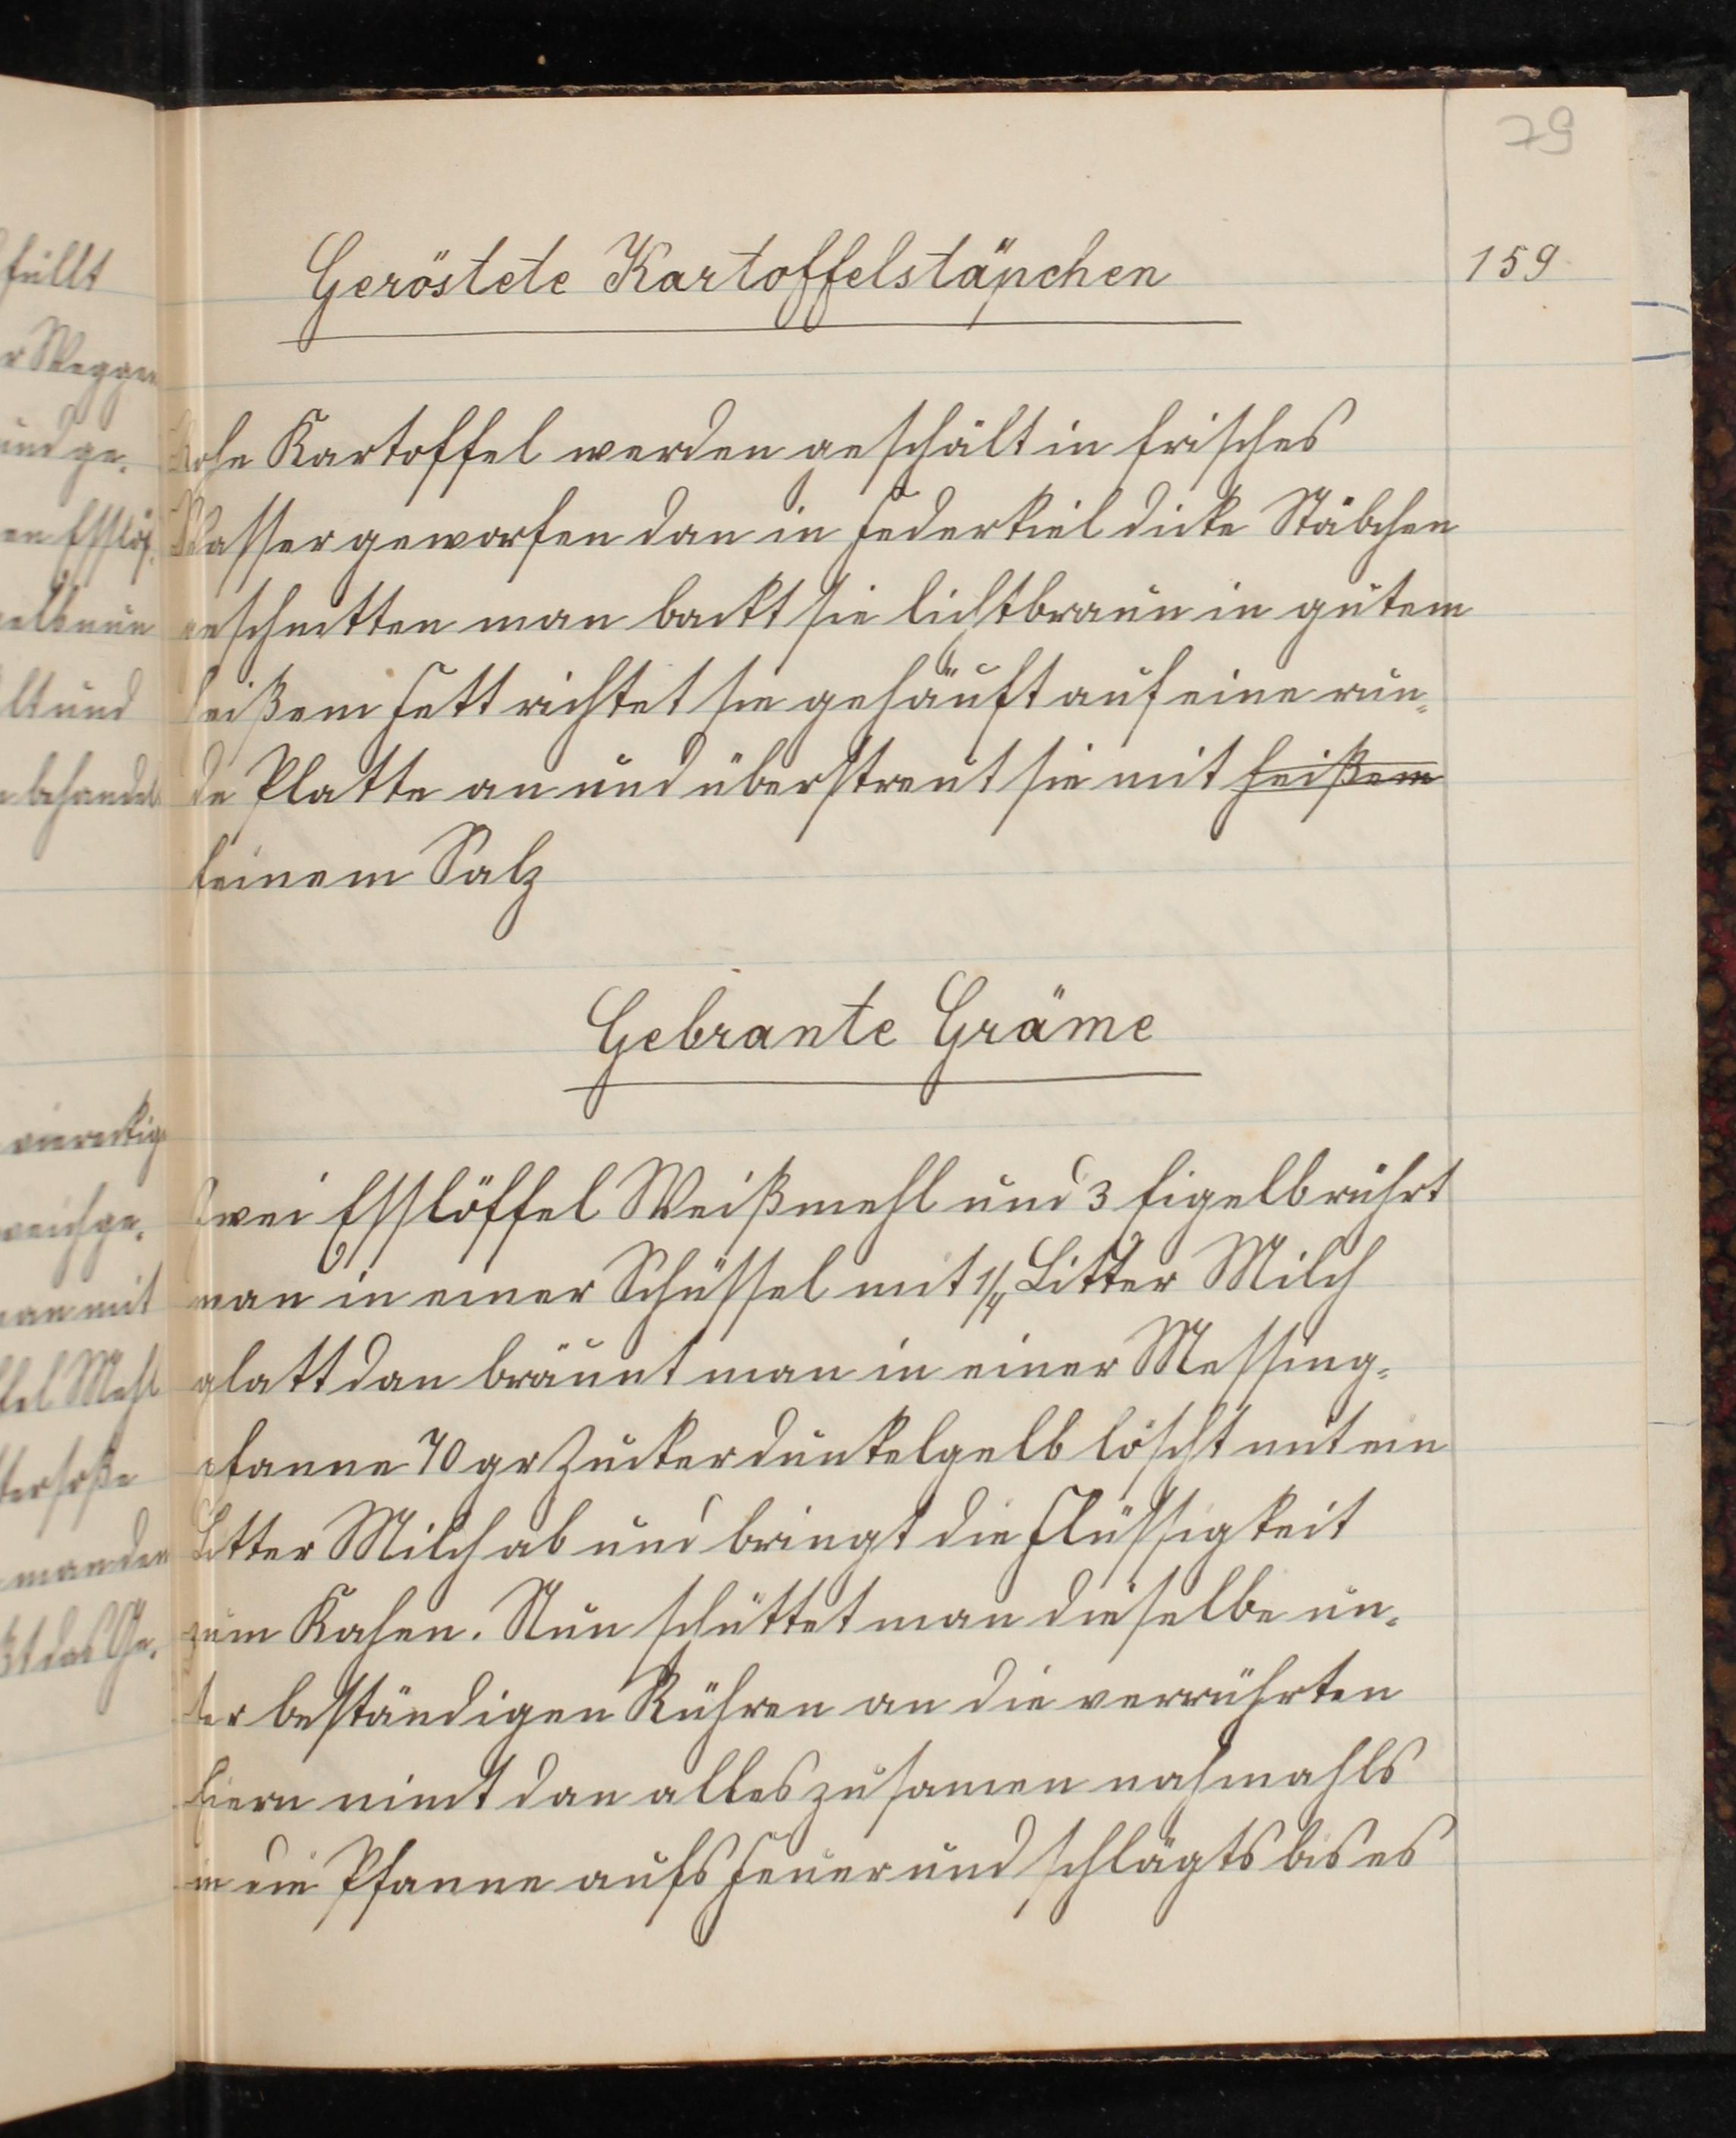 79
159
Geröstete Kartoffelstäpchen
Rohe Kartoffel werden geschält in frisches
Wasser geworfen dan in Federkiel dicke Stäbchen
geschnitten man backt sie lichtbraun in gutem
heißem Fett richtet sie gehäuft auf eine run=
de Platte an und überstreut sie mit heißem
feinem Salz
Gebrante Gräme
Zwei Esslöffel Weißmehl und 3 Eigelb rührt
man in einer Schüssel mit 1/4 Litter Milch
glatt dan bräunt man in einer Messing=
pfanne 70 gr Zucker dunkelgelb löscht mit ein
Litter Milch ab und bringt die Flüssigkeit
zum Kahen. Nun schüttet man dieselbe un=
ter beständigen Rühren an die verrührten
Eiern nimt dan alles zusamen nahmahls
in die Pfanne aufs Feuer und schlägts bis es
füllt
r Weggen
und ge=
en Esslöf=
gelb nun
lt und
behandel
viereckige
weich ge=
man mit
fel Mehl
ter soße
man den
st das Ge=